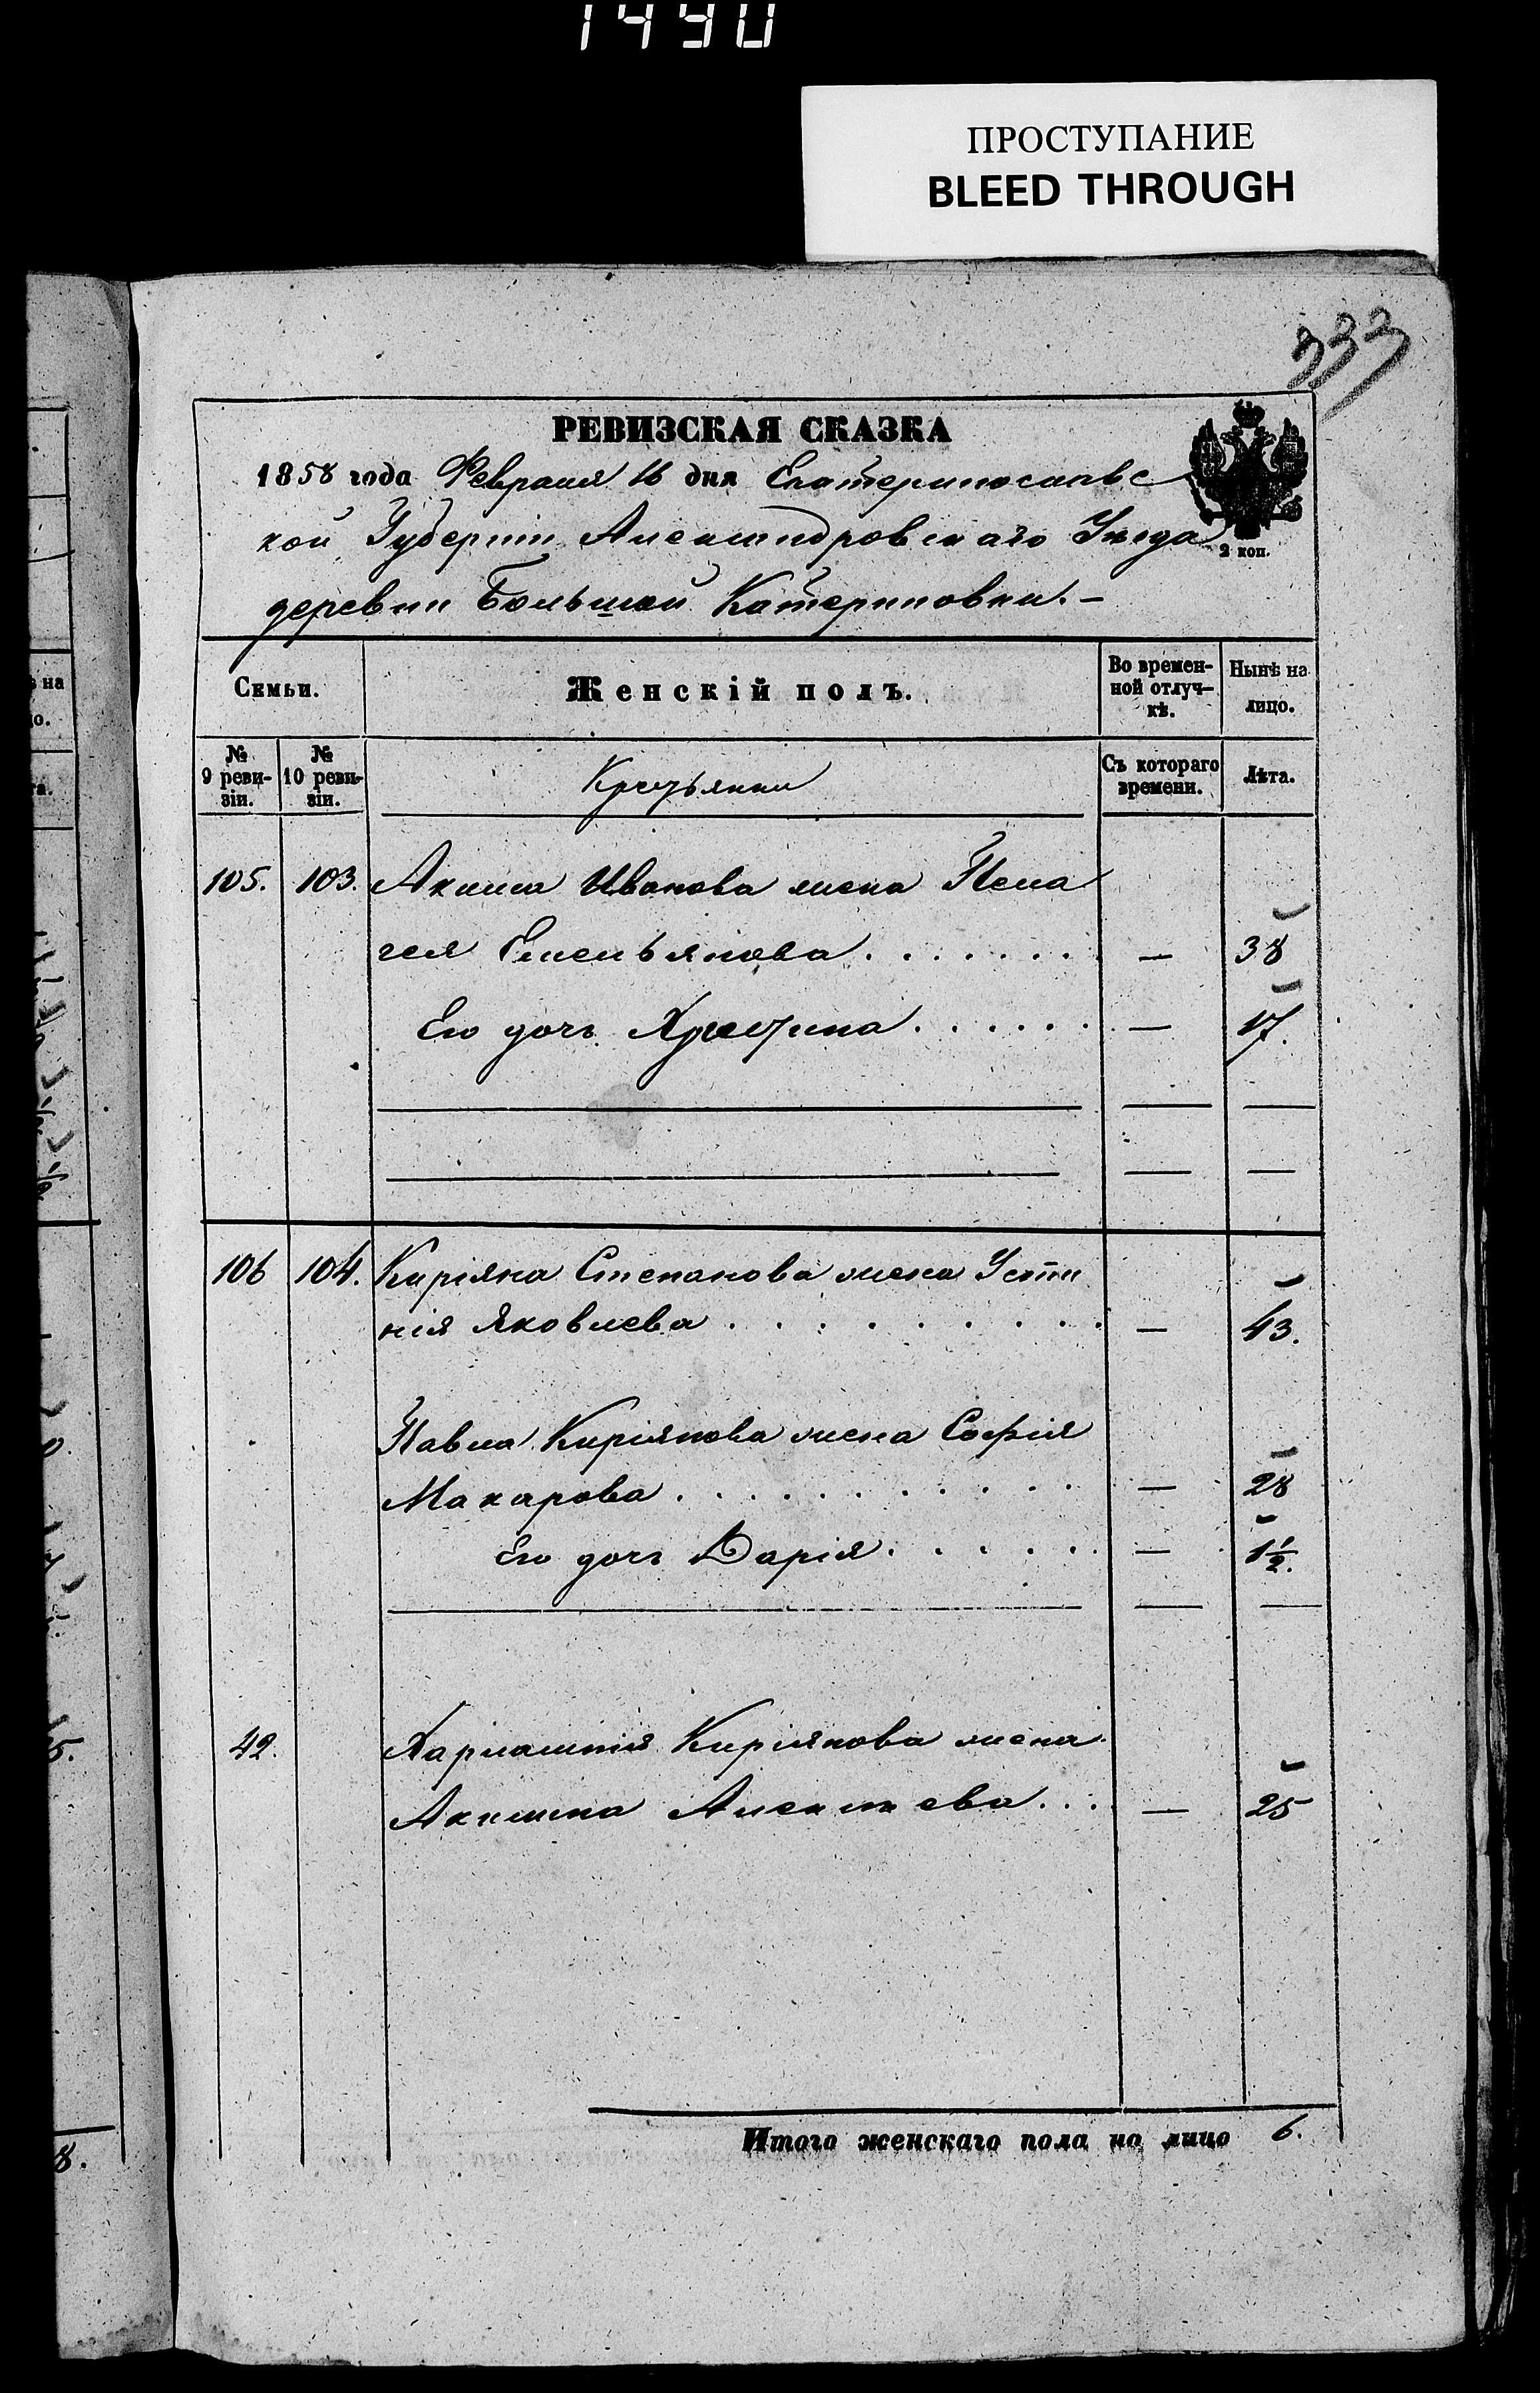 1490
ПРОСТУПАНИЕ
BLEED THROUGH
333
РЕВИЗСКАЯ СКАЗКА
1858 года Февраля 16 дня Екатеринославс
кой Губерніи Александровскаго Уезда
2 коп.
деревни Большой Катериновки.–
Семьи. Женскій полъ. Во времен-
ной отлуч-
кѣ. Нынѣ на
лицо.
№
9 реви-
зіи. №
10 реви-
зіи. Крестьянки Съ котораго
времени. Лѣта.
105. 103. Акима Иванова жена Пела
гея Емельянова . . . . . . . — 38
Его дочь Христина . . . . . . — 17.
106 104. Киріяка Степанова жена Усти
нія Яковлева . . . . . . . . . — 43.
Павла Киріякова жена Софія
Макарова . . . . . . . . . . . . — 28
Его дочь Дарія . . . . . — 1½.
42. Харлампія Киріякова жена
Акимна Алексеева . . . — 25
Итого женскаго пола на лицо 6.
ѣ на
о.
та.
15.
8.